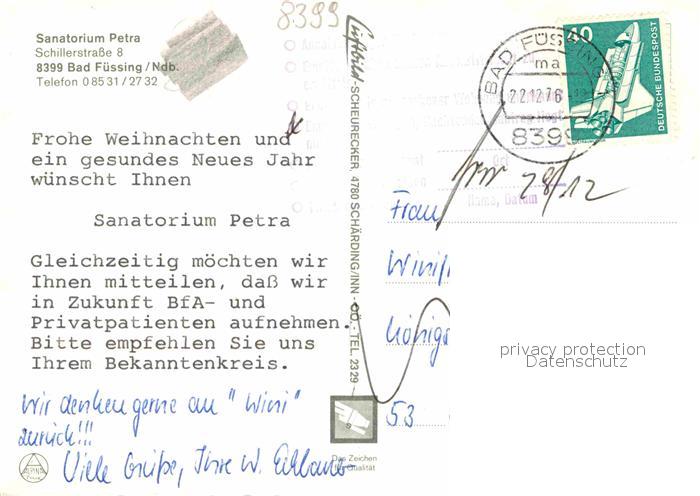 8399
Sanatorium Petra
Schillerstraße 8
8399 Bad Füssing/Ndb.
Telefon 0 85 31 / 27 32
Frohe Weihnachten und
ein gesundes Neues Jahr
wünscht Ihnen
Sanatorium Petra
Gleichzeitig möchten wir
Ihnen mitteilen, daß wir
in Zukunft BfA- und
Privatpatienten aufnehmen.
Bitte empfehlen Sie uns
Ihrem Bekanntenkreis.
Wir denken gerne an "Wini"
zurück!!!
Viele Grüße, Ihre W.
ALPINA
Das Zeichen
für Qualität
Luftbild-SCHEURECKER, 4780 SCHÄRDING/INN - OÖ. - TEL. 2329
BAD FÜSSING
ma
22.12.76
8399
40
DEUTSCHE BUNDESPOST
28/12
Ort
Name, Datum
Frau
Winif
Königs
53
privacy protection
Datenschutz